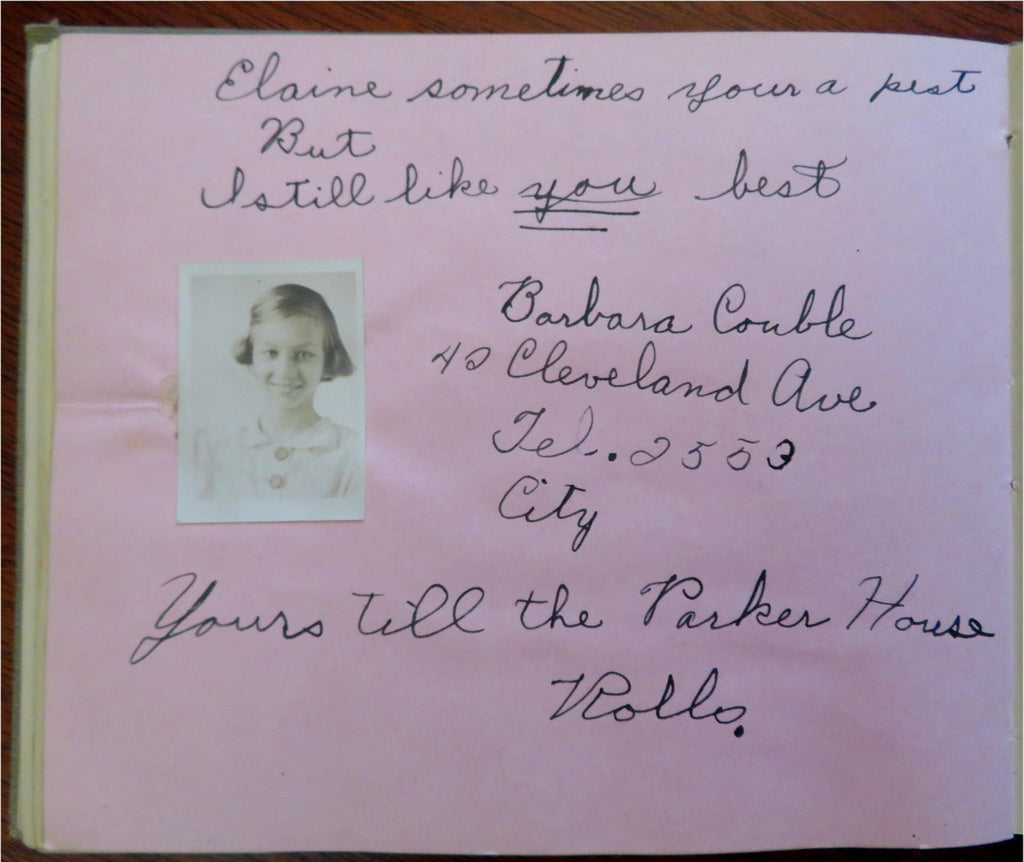 Elaine sometimes your a pest
But
I still like you best
Barbara Couble
40 Cleveland Ave
Tel. 2553
City
Yours till the Parker House
Rolls.